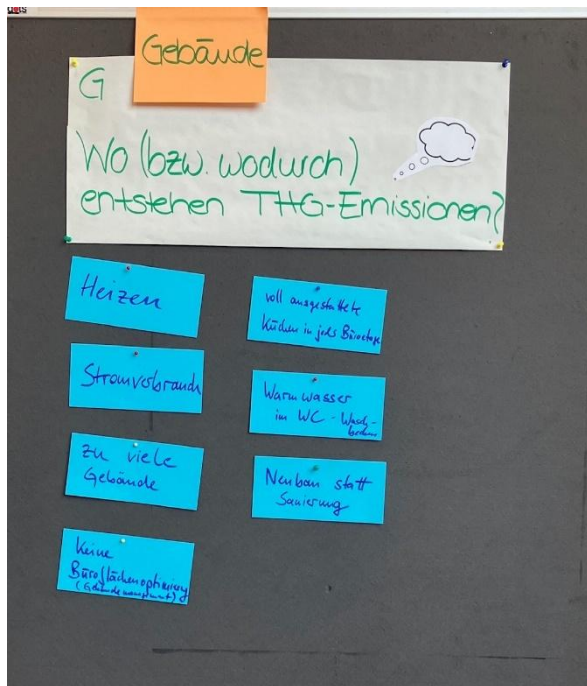 Gebäude
G
Wo (bzw. wodurch)
entstehen THG-Emissionen?
Heizen
Stromverbrauch
zu viele
Gebäude
Keine
Büroflächenoptimierung
(Gebäudemanagement)
voll ausgestattete
Küchen in jeder Büroetage
Warmwasser
im WC-Wasch-
becken
Neubau statt
Sanierung